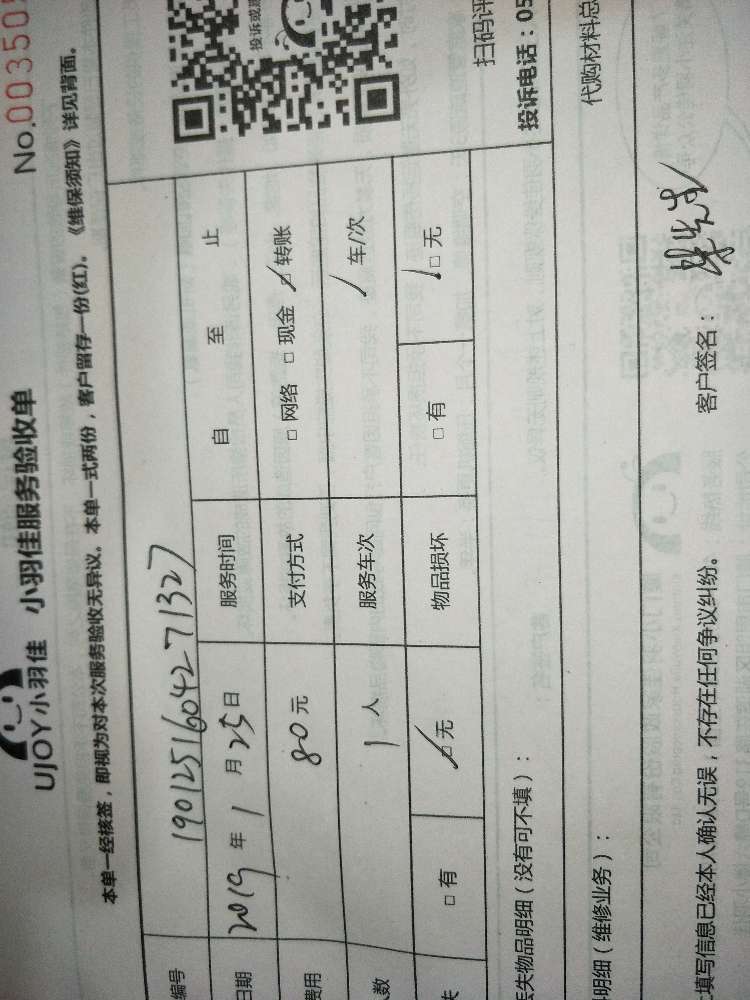 No.00350
UJOY小羽佳 小羽佳服务验收单
本单一经核签，即视为对本次服务验收无异议。本单一式两份，客户留存一份(红)。《维保须知》详见背面。
编号 190125160427 1327
日期 2019 年 1 月 25 日 服务时间 自 至 止
费用 80 元 支付方式 □ 网络 □ 现金 ☑ 转账
人数 1 人 服务车次 1 车/次
失 □ 有 ☑ 无 物品损坏 □ 有 ☑ 无
投诉或
扫码评
投诉电话：05
丢失物品明细（没有可不填）：
明细（维修业务）：
代购材料总
填写信息已经本人确认无误，不存在任何争议纠纷。 客户签名：